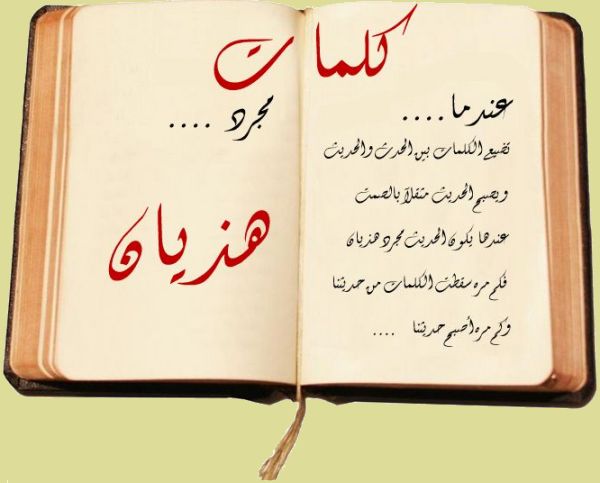 كلمات
عندما....
تضيع الكلمات بين الحدث والحديث
ويصبح الحديث مثقلاً بالصمت
عندها يكون الحديث مجرد هذيان
فكم مره سقطت الكلمات من حديثنا
وكم مره أصبح حديثنا ....
مجرد ....
هذيان